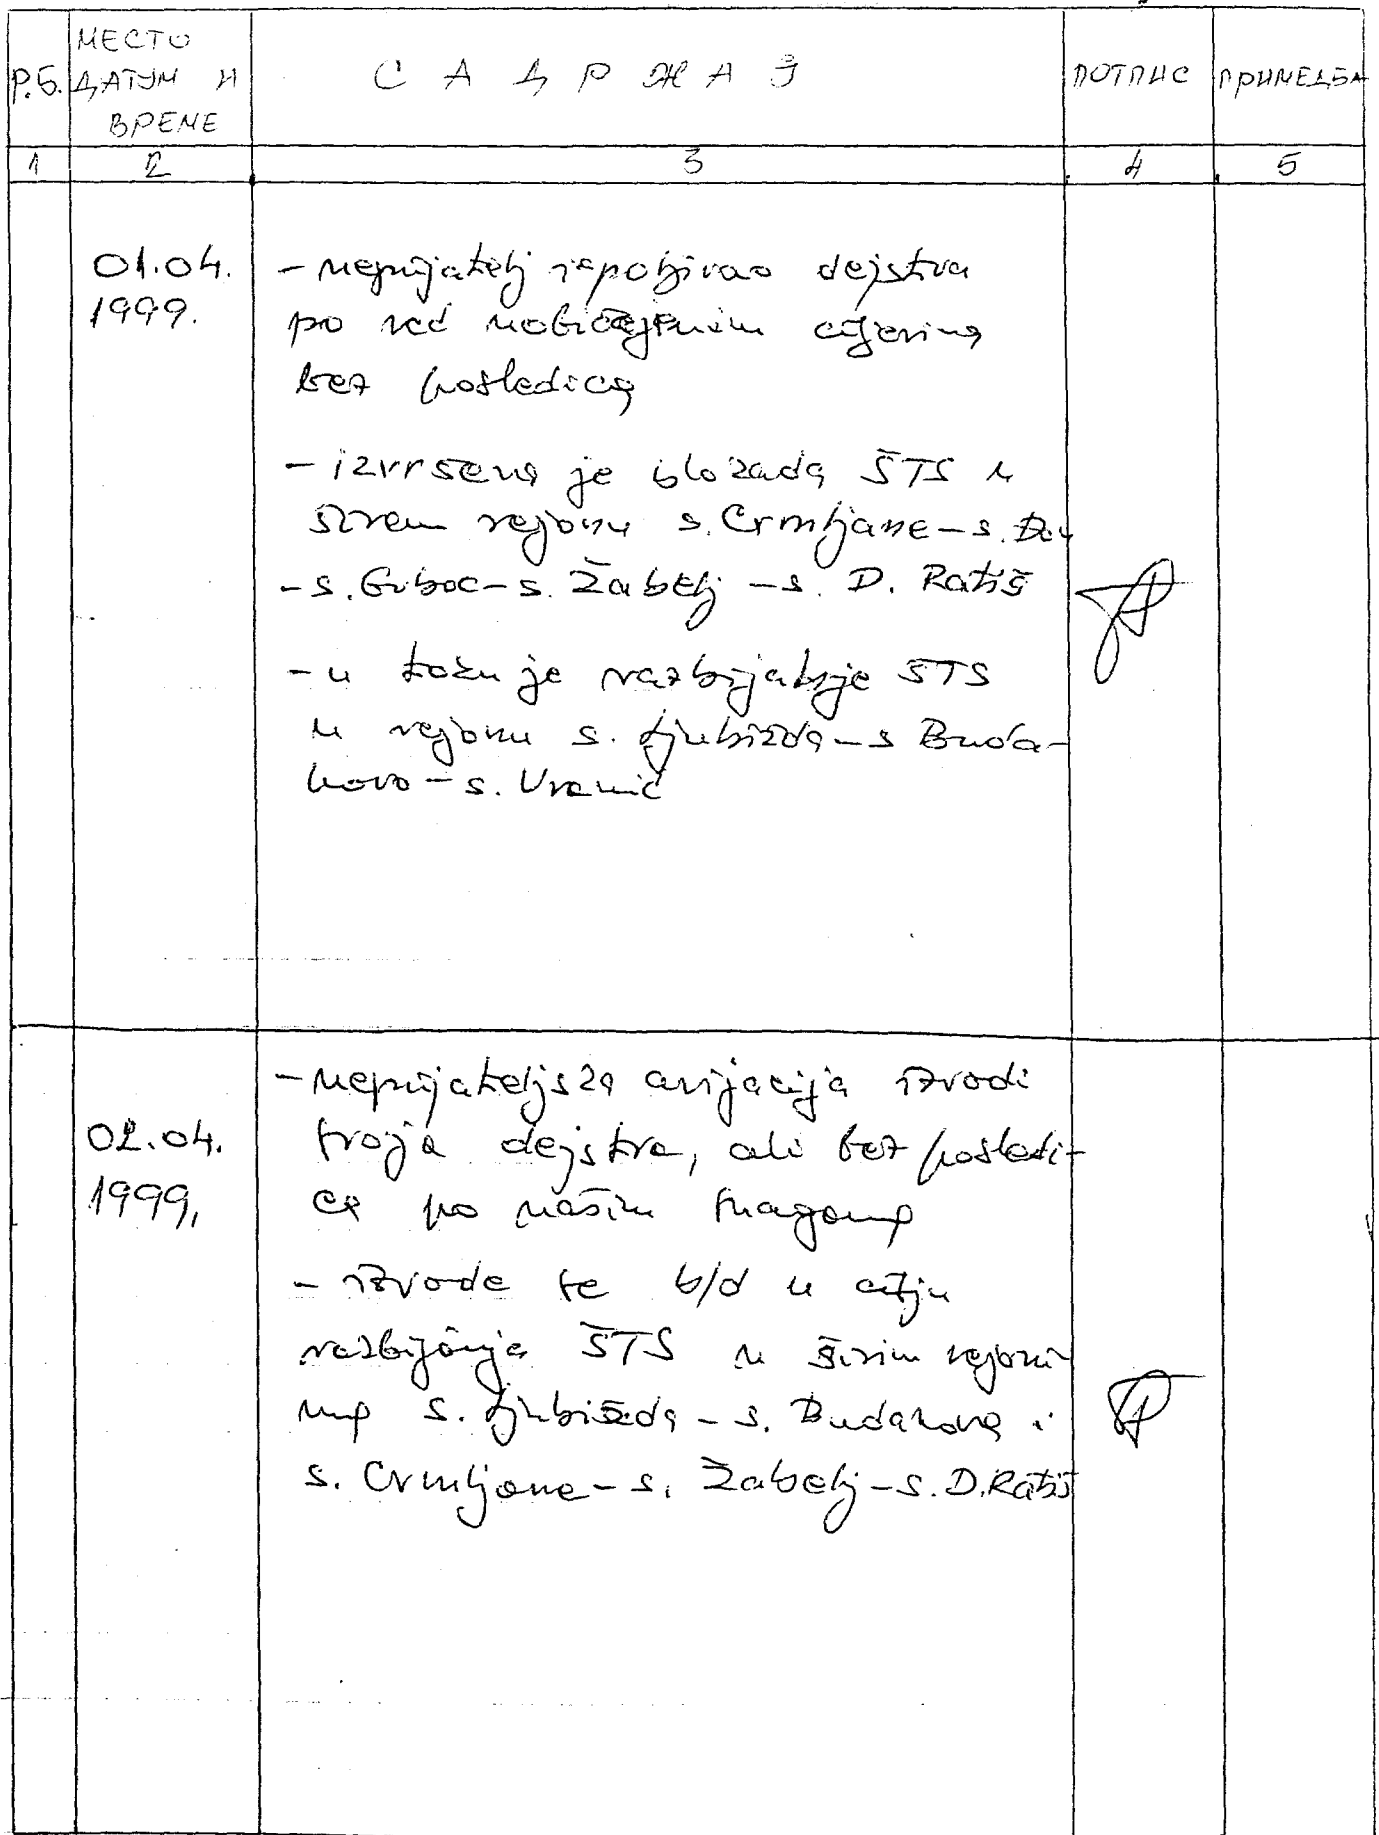 Р.Б. МЕСТО ДАТУМ И ВРЕМЕ САДРЖАЈ ПОТПИС ПРИМЕДБА
1 2 3 4 5
01.04.
1999.
- neprijatelj ispoljivao dejstva
po već uobičajenim ciljevima
bez posledica
- izvršena je blokada ŠTS u
širem rejonu s. Crmljane - s.
- s. Guboc - s. Žabelj - s. D. Ratiš
- u toku je razbijanje ŠTS
u rejonu s. Ljubižda - s Buda-
kovo - s. Vranić
02.04.
1999.
- neprijateljska avijacija izvodi
svoja dejstva, ali bez posledi-
ca po našim snagama
- izvode se b/d u cilju
razbijanja ŠTS u širim rejoni-
ma s. Ljubižda - s. Budakova i
s. Crmljane - s. Žabelj - s. D. Ratiš